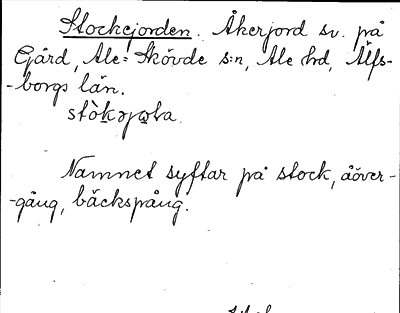 Stockejorden. Åkerjord sv. på
Gård, Ale-Skövde s:n, Ale hd, Älfs-
-borgs län.
Namnet syftar på stock, åöver-
-gång, bäckspång.